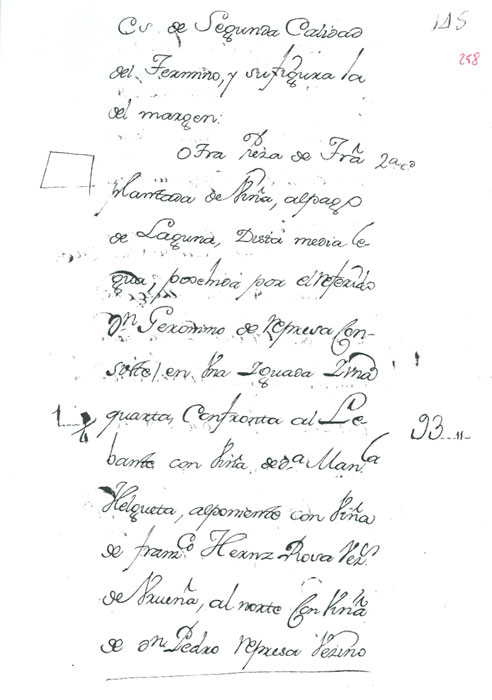 145
258
es de Segunda Calidad
del Termino, y su figura la
del margen:
Otra Pieza de Trã 2a..ca
plantada de Viña, al pago
de Laguna, Dista media le-
gua; posehida por el referido
Dn Geronimo de Represa Con-
siste en Una Iguada
quarta, Confronta al Le-
1 1/4
93..11
bante con Viña de Da Manla
Helgueta, al poniente con Viña
de franco Hernz Rova Vezo
de Nrueña, al norte Con Viña
de Dn Pedro Represa Vezino